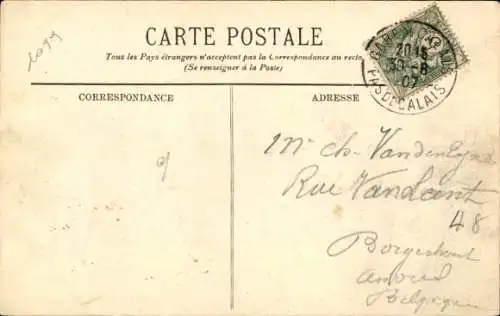 1099
CARTE POSTALE
Tous les Pays étrangers n'acceptent pas la Correspondance au recto
(Se renseigner à la Poste)
CORRESPONDANCE
ADRESSE
20 15
30 - 8
07
PAS DE CALAIS
Mr Ch. Vanden
Rue
48
Borgerhout
Anvers
Belgique